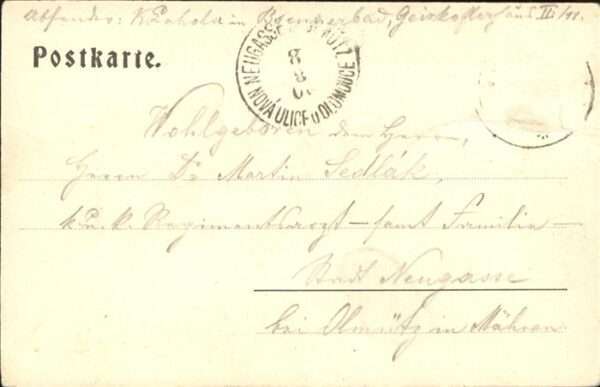 Absender: in Brennerbad, III/41.
Postkarte.
NEUGASSE
NOVÁ ULICE u OLOMOUCE
8
8
Wohlgeboren dem Herrn,
Herrn Dr Martin Sedlák,
k. u. k. Regimentsarzt – samt Familie –
Stadt Neugasse
bei Olmütz in Mähren